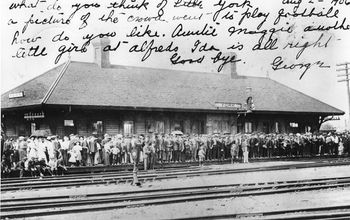 what do you think of little York Aug 2-1906
a picture of the crowd went to play football
how do you like. Auntie Maggie another
little girl at alfreds Ida is all right-
Good bye. George